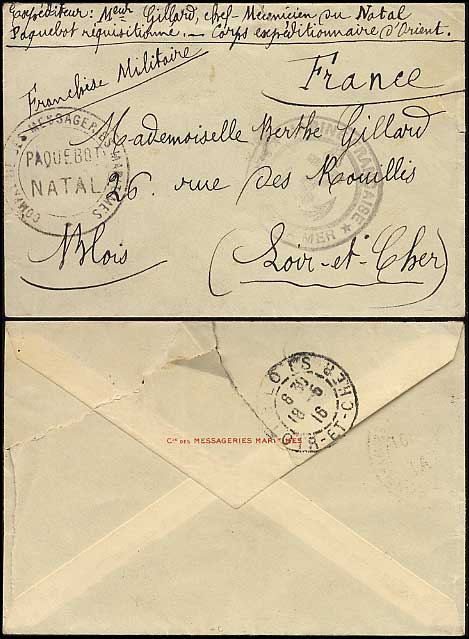 Expéditeur: Meur Gillard, chef-Mécanicien du Natal
Paquebot réquisitionné. — Corps expéditionnaire d'Orient.
Franchise Militaire
France
MESSAGERIES MARITIMES
PAQUEBOT
NATAL
Mademoiselle Berthe Gillard
26 rue des Rouillis
Blois
(Loir-et-Cher)
FRANÇAISE
MER
BLOIS
LOIR-ET-CHER
16
Cie DES MESSAGERIES MARITIMES